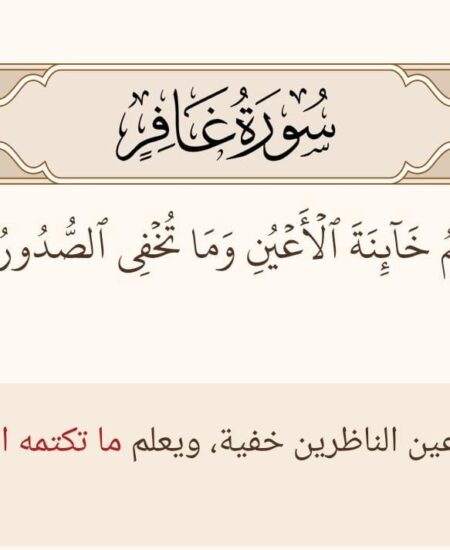 سُورَةُ غَافِرٍ
خَآئِنَةَ ٱلْأَعْيُنِ وَمَا تُخْفِى ٱلصُّدُورُ
الناظرين خفية، ويعلم ما تكتمه